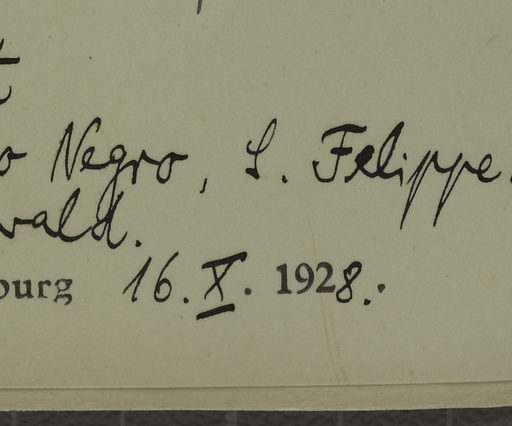 o Negro, S. Felippe.
wald.
ourg 16. X. 1928.